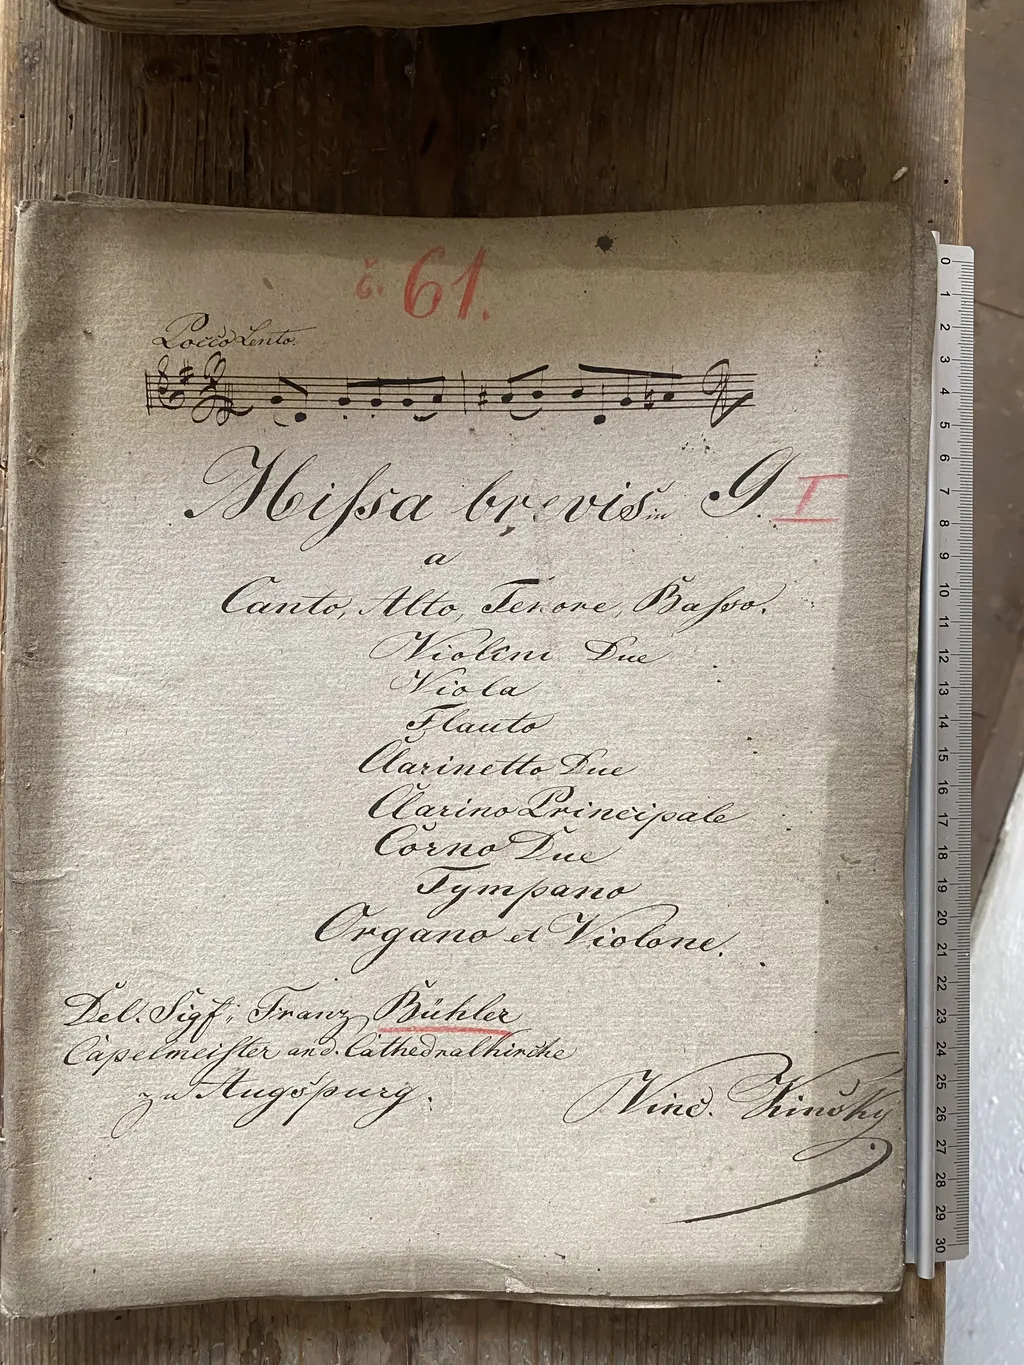 č. 61.
Pocco Lento.
Missa brevis in G. I
a
Canto, Alto, Tenore, Basso.
Violini Due
Viola
Flauto
Clarinetto Due
Clarino Principale
Corno Due
Tympano
Organo et Violone.
Del. Sigr. Franz Bühler
Capelmeister and. Cathedralkirche
zu Augspurg.
Vinc. Kinsky
0 1 2 3 4 5 6 7 8 9 10 11 12 13 14 15 16 17 18 19 20 21 22 23 24 25 26 27 28 29 30